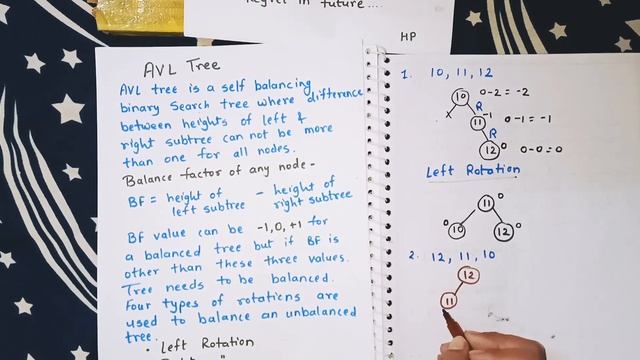 Regret in future....
HP
AVL Tree
AVL tree is a self balancing
binary search tree where difference
between heights of left &
right subtree can not be more
than one for all nodes.
Balance factor of any node -
BF = height of left subtree - height of right subtree
BF value can be -1, 0, +1 for
a balanced tree but if BF is
other than these three values.
Tree needs to be balanced.
Four types of rotations are
used to balance an unbalanced
tree.
• Left Rotation
1. 10, 11, 12
10 0-2 = -2
X R
11 -1 0-1 = -1
R
12 0 0-0 = 0
Left Rotation
11 0
0 10 12 0
2. 12, 11, 10
12
11